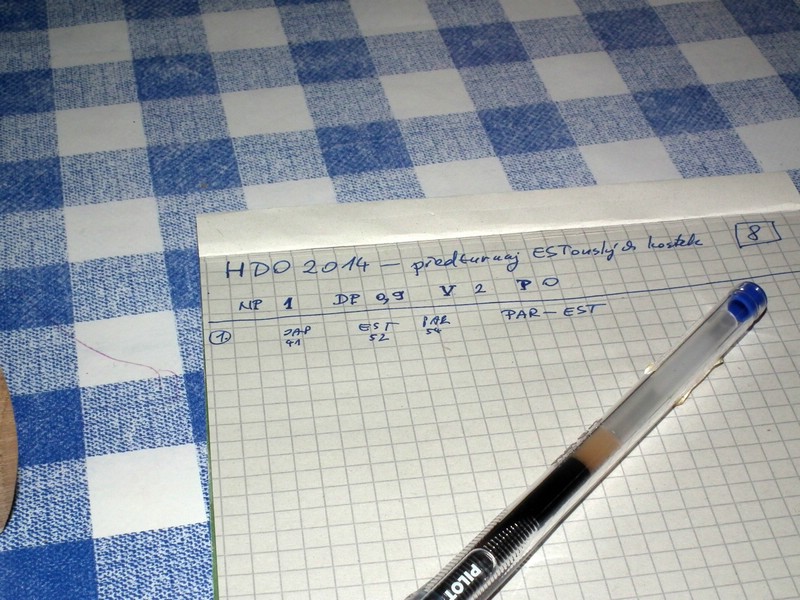 HDO 2014 — předturnaj ESTonských kostek 8
NP 1 DP 0,9 V 2 P 0
1. JAP EST PAR PAR – EST
41 52 54
PILOT